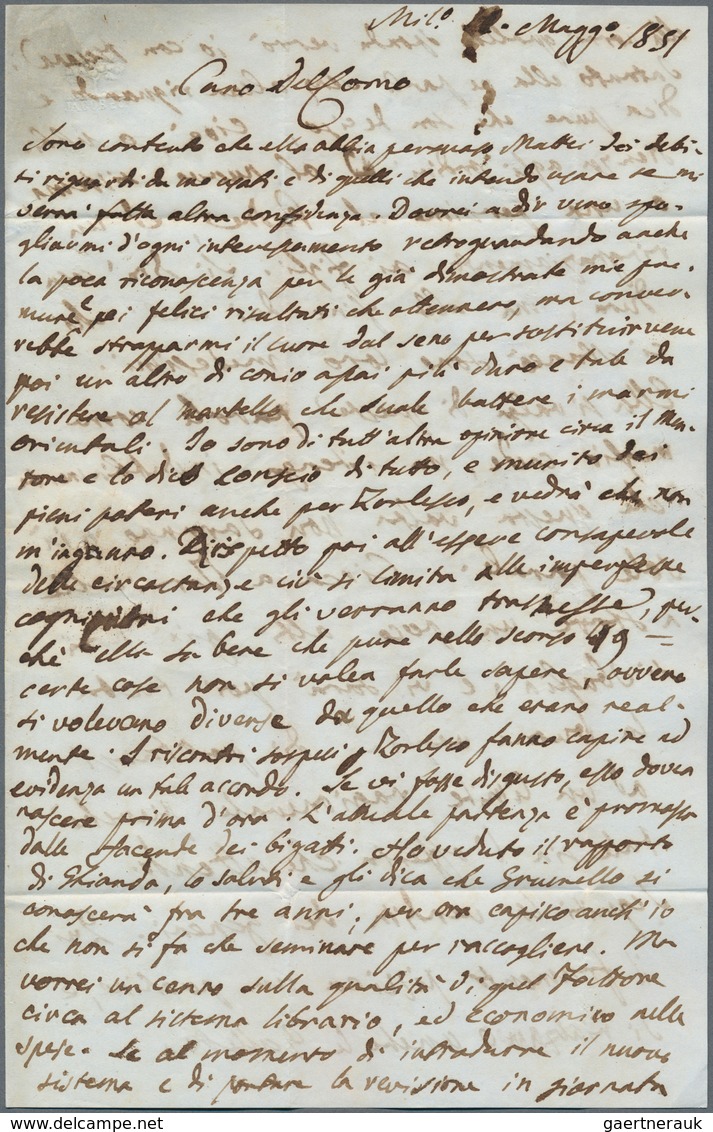 Mil.º Maggº 1851
Caro Del Corno
Sono contento che ella abbia persuaso Mattei dei debi-
ti riguardi da me usati e di quelli che intendo usare se mi
verrà fatta altra confidenza. Dovrei a dir vero spo-
gliarmi d'ogni interessamento retroguardando anche
la poca riconoscenza per le già dimostrate mie pre-
mure e pei felici risultati che ottennero, ma conver-
rebbe strapparmi il cuore dal seno per sostituirvene
poi un altro di conio assai più duro e tale da
resistere al martello che suole battere i marmi
orientali. Io sono di tutt'altra opinione circa il Mn-
tore e lo dico conscio di tutto, e munito dei
pieni poteri anche per Zorlesco, e vedrà che non
m'inganno. Rispetto poi all'essere consapevole
delle circostanze ciò si limita alle imperfette
cognizioni che gli verranno trasmesse, per-
chè ella sa bene che pure nello scorso 49 =
certe cose non si volea farle sapere, ovvero
si volevano diverse da quello che erano real-
mente. I riscontri sospesi Zorlesco fanno capire ad
evidenza un tale accordo. Se vi fosse disgusto, esso dovea
nascere prima d'ora. L'attuale partenza è promossa
dalle faccende dei bigatti. Ho veduto il rapporto
di Ghianda, lo saluti e gli dica che Grumello si
conoscerà fra tre anni, per ora capisco anch'io
che non si fa che seminare per raccogliere. Ma
vorrei un cenno sulla qualità di quel Fattore
circa al sistema librario, ed economico nelle
spese. Se al momento di introdurre il nuovo
sistema e di portare la revisione in giornata
gaertnerauk